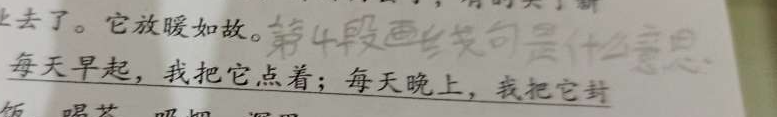 去了。它放暖如故。第4段画线句是什么意思.
每天早起，我把它点着；每天晚上，我把它封